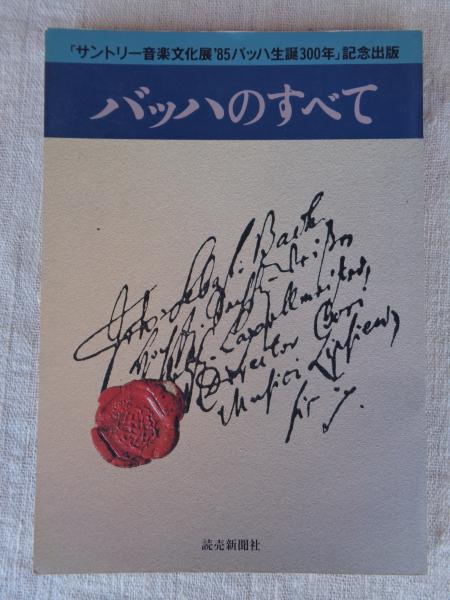 「サントリー音楽文化展'85バッハ生誕300年」記念出版
バッハのすべて
Joh. Sebast. Bach
Capellmeister,
Director Chori
Musici Lipsiens
読売新聞社